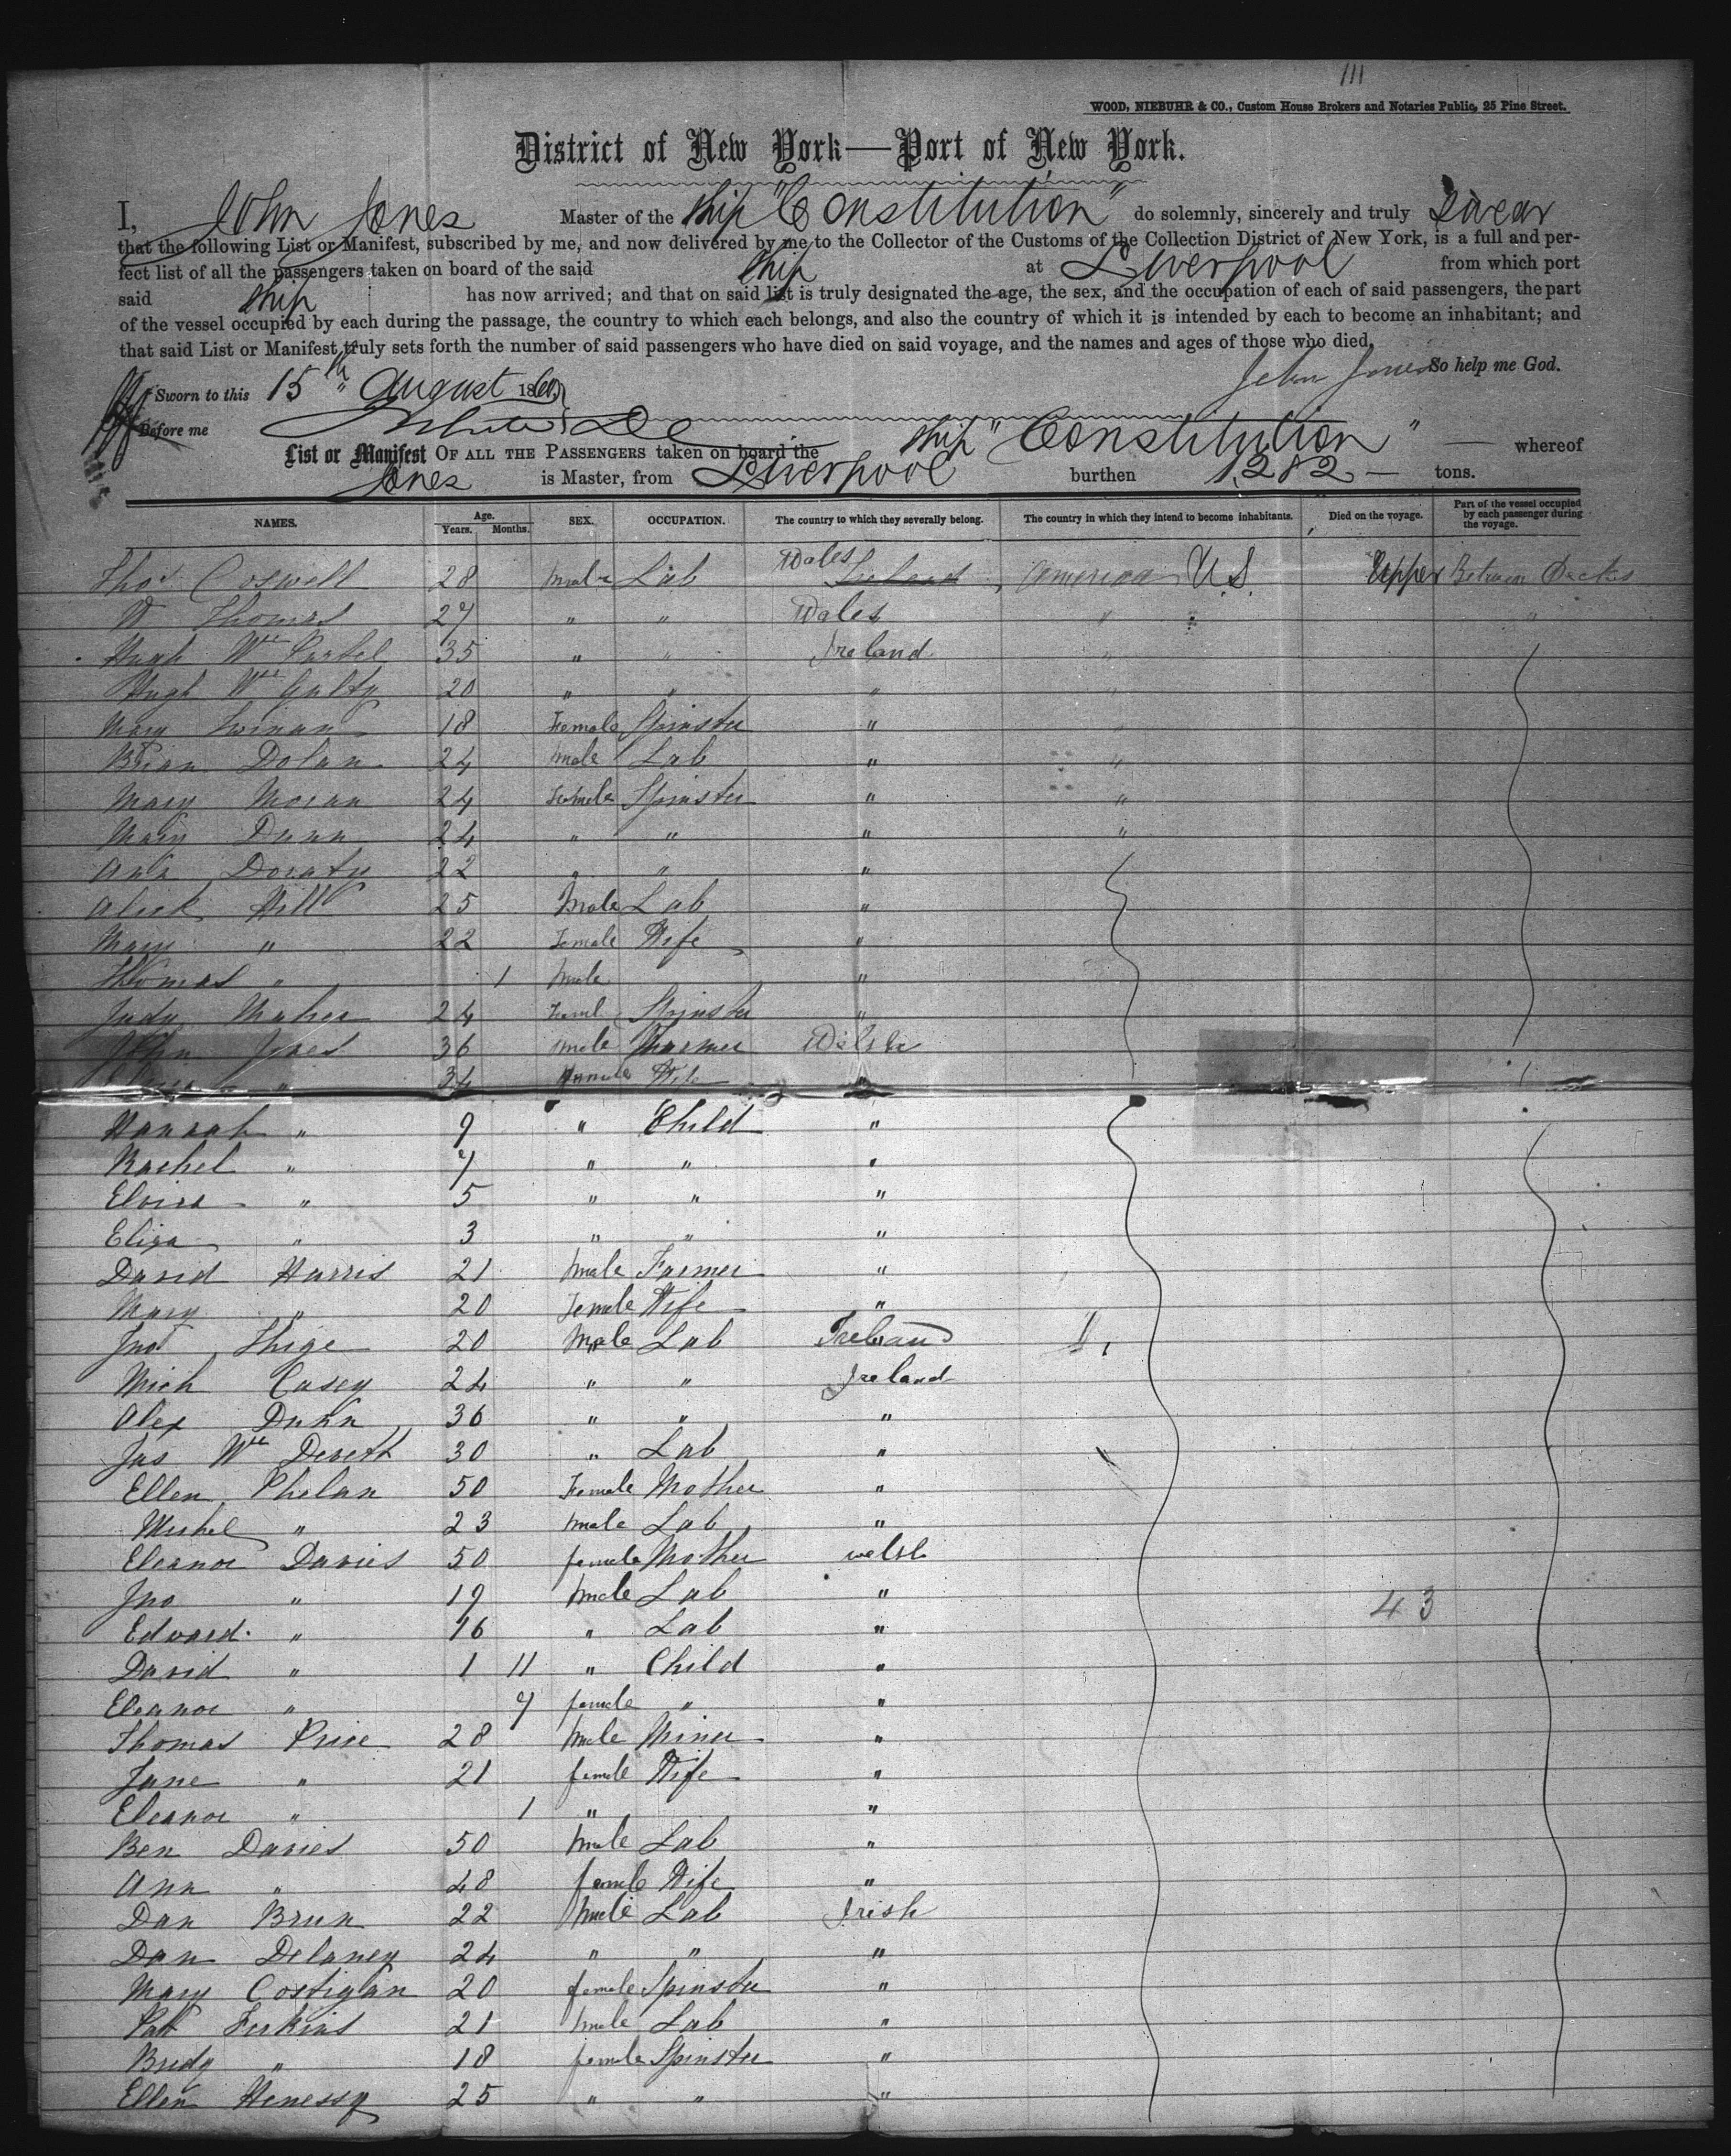 111
WOOD, NIEBUHR & CO., Custom House Brokers and Notaries Public, 25 Pine Street.
District of New York—Port of New York.
I, John Jones Master of the Ship "Constitution" do solemnly, sincerely and truly Swear
that the following List or Manifest, subscribed by me, and now delivered by me to the Collector of the Customs of the Collection District of New York, is a full and per-
fect list of all the passengers taken on board of the said Ship at Liverpool from which port
said Ship has now arrived; and that on said list is truly designated the age, the sex, and the occupation of each of said passengers, the part
of the vessel occupied by each during the passage, the country to which each belongs, and also the country of which it is intended by each to become an inhabitant; and
that said List or Manifest truly sets forth the number of said passengers who have died on said voyage, and the names and ages of those who died.
John Jones So help me God.
Sworn to this 15th August 1860
Before me
List or Manifest OF ALL THE PASSENGERS taken on board the Ship "Constitution" — whereof
Jones is Master, from Liverpool burthen 1,282 — tons.
NAMES. Age. Years. Months. SEX. OCCUPATION. The country to which they severally belong. The country in which they intend to become inhabitants. Died on the voyage. Part of the vessel occupied by each passenger during the voyage.
Thos Coswell 28 male Lab Wales Ireland America U.S. Upper Between Decks
W Thomas 27 " " Wales " "
Hugh 35 " " Ireland "
Hugh 20 " " " "
Mary 18 Female Spinster " "
Brian Dolan 24 male Lab " "
Mary Moran 24 Female Spinster " "
Mary Dunn 24 " " " "
Ann Doraty 22 " " "
Alick Hill 25 Male Lab "
Mary " 22 Female Wife "
Thomas " 1 Male "
Judy Maher 24 Feml Spinster "
John Jones 36 male Farmer Welsh
" 34 Female Wife "
Hannah " 9 " Child "
Rachel " 7 " " "
" 5 " " "
Eliza " 3 " " "
David Harris 21 male Farmer "
Mary " 20 Female Wife "
Jno 20 Male Lab Ireland
Mich Casey 24 " " Ireland
Alex Dunn 36 " " "
Jas 30 " Lab "
Ellen Phelan 50 Female Mother "
Michel " 23 male Lab "
Eleanor Davies 50 female Mother welsh
Jno " 19 male Lab " 43
Edward " 16 " Lab "
David " 1 11 " Child "
Eleanor " 7 female " "
Thomas Price 28 male Miner "
Jane " 21 female Wife "
Eleanor " 1 " "
Ben Davies 50 male Lab "
Ann " 48 female Wife "
Dan Brun 22 male Lab Irish
Dan Delaney 24 " " "
Mary Costigan 20 female Spinster "
Pat 21 male Lab "
Bridy " 18 female Spinster "
Ellen Henessy 25 " " "